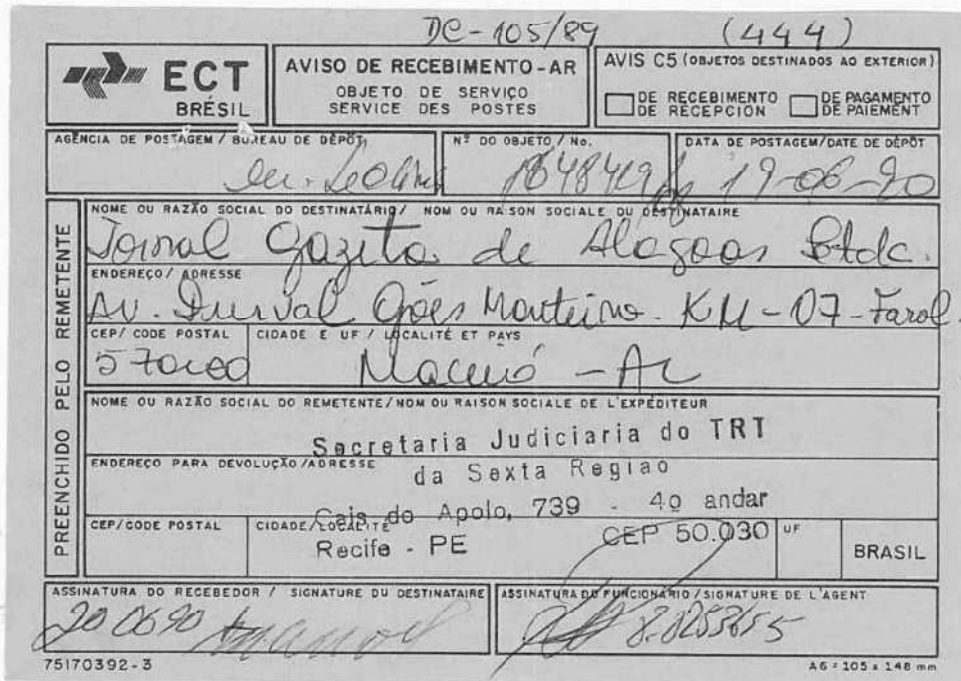 DC-105/89 (444)
ECT
BRÉSIL
AVISO DE RECEBIMENTO-AR
OBJETO DE SERVIÇO
SERVICE DES POSTES
AVIS C5 (OBJETOS DESTINADOS AO EXTERIOR)
DE RECEBIMENTO
DE RECEPCION
DE PAGAMENTO
DE PAIEMENT
AGÊNCIA DE POSTAGEM / BUREAU DE DÉPÔT
Nº DO OBJETO / No.
DATA DE POSTAGEM/DATE DE DÉPÔT
19-06-90
PREENCHIDO PELO REMETENTE
NOME OU RAZÃO SOCIAL DO DESTINATÁRIO/ NOM OU RAISON SOCIALE DU DESTINATAIRE
Jornal Gazeta de Alagoas Ltda.
ENDEREÇO/ ADRESSE
Av. Durval Góes Monteiro. KM-07-Farol.
CEP/ CODE POSTAL
CIDADE E UF / LOCALITÉ ET PAYS
Maceió - AL
NOME OU RAZÃO SOCIAL DO REMETENTE/NOM OU RAISON SOCIALE DE L'EXPÉDITEUR
Secretaria Judiciaria do TRT
ENDEREÇO PARA DEVOLUÇÃO/ADRESSE
da Sexta Regiao
Cais do Apolo, 739 - 4º andar
CEP/CODE POSTAL
CIDADE/LOCALITÉ
Recife - PE
CEP 50.030
UF
BRASIL
ASSINATURA DO RECEBEDOR / SIGNATURE DU DESTINATAIRE
20 06 90
ASSINATURA DO FUNCIONÁRIO/SIGNATURE DE L'AGENT
75170392-3
A6 = 105 x 148 mm